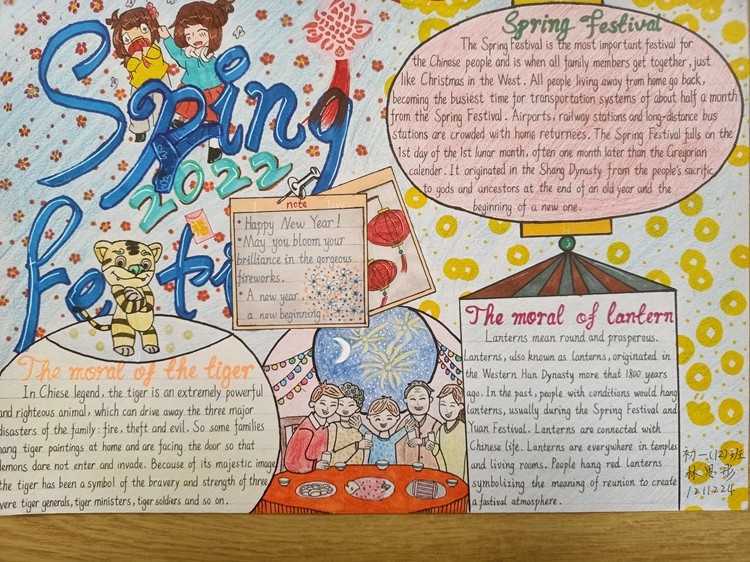 Spring
2022
Festi
Spring Festival
The Spring Festival is the most important festival for
the Chinese people and is when all family members get together, just
like Christmas in the West. All people living away from home go back,
becoming the busiest time for transportation systems of about half a month
from the Spring Festival. Airports, railway stations and long-distance bus
stations are crowded with home returnees. The Spring Festival falls on the
1st day of the 1st lunar month, often one month later than the Gregorian
calender. It originated in the Shang Dynasty from the people's sacrific
to gods and ancestors at the end of an old year and the
beginning of a new one.
note
• Happy New Year!
• May you bloom your
brilliance in the gorgeous
fireworks.
• A new year
a new beginning
The moral of the tiger
In Chiese legend, the tiger is an extremely powerful
and righteous animal, which can drive away the three major
disasters of the family: fire, theft and evil. So some families
hang tiger paintings at home and are facing the door so that
demons dare not enter and invade. Because of its majestic image
the tiger has been a symbol of the bravery and strength of three
were tiger generals, tiger ministers, tiger soldiers and so on.
The moral of lantern
Lanterns mean round and prosperous.
Lanterns, also known as lanterns, originated in
the Western Han Dynasty more that 1800 years
ago. In the past, people with conditions would hang
lanterns, usually during the Spring Festival and
Yuan Festival. Lanterns are connected with
Chinese life. Lanterns are everywhere in temples
and living rooms. People hang red lanterns
symbolizing the meaning of reunion to create
a fastival atmosphere.
初一(12)班
林
1211224